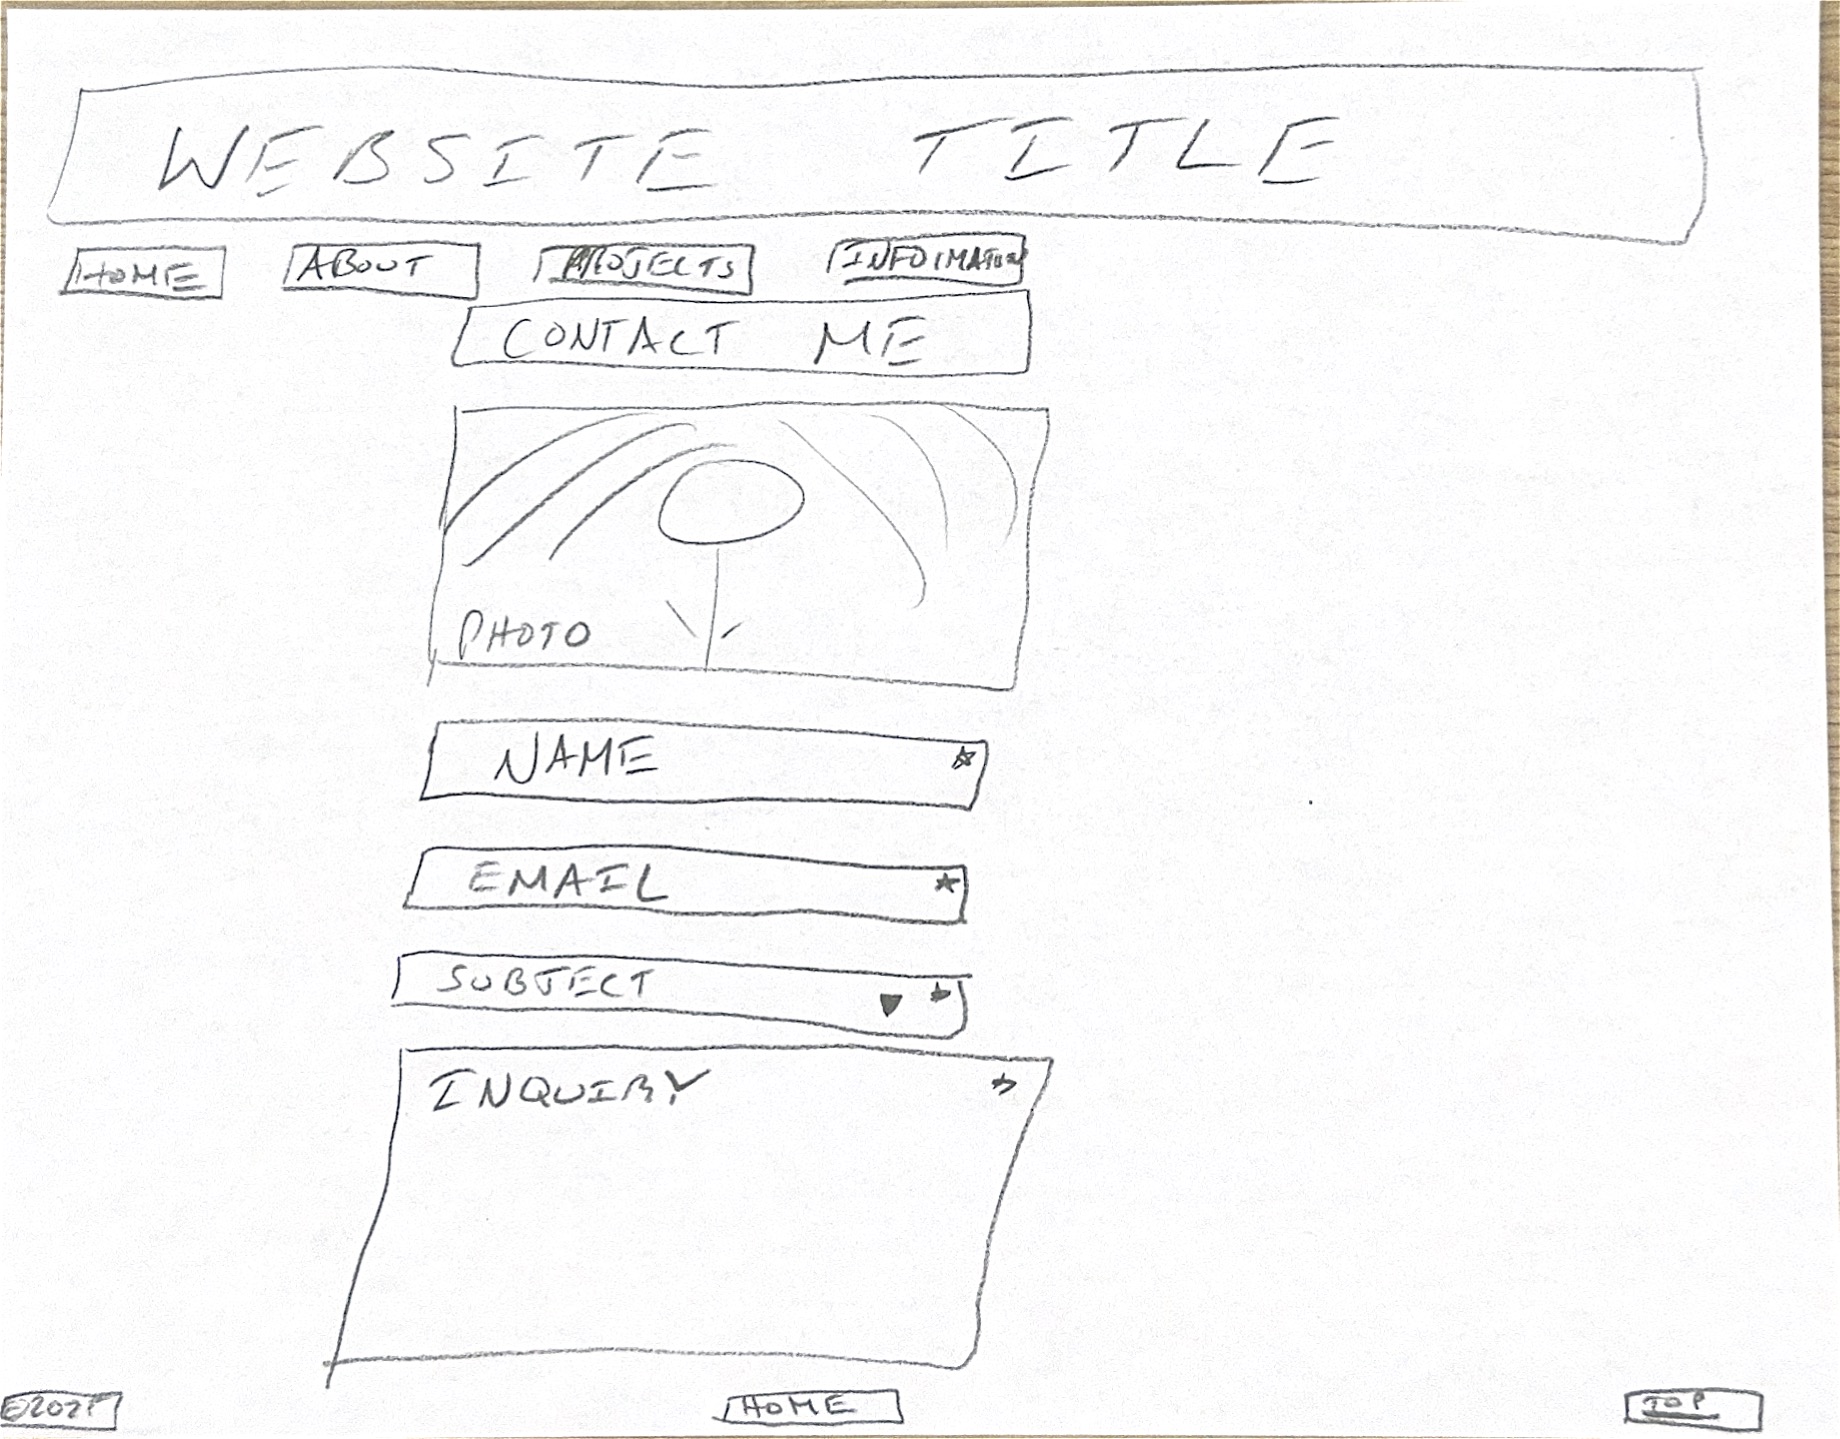 WEBSITE TITLE
HOME ABOUT PROJECTS INFORMATION
CONTACT ME
PHOTO
NAME *
EMAIL *
SUBJECT ▼ *
INQUIRY *
HOME TOP